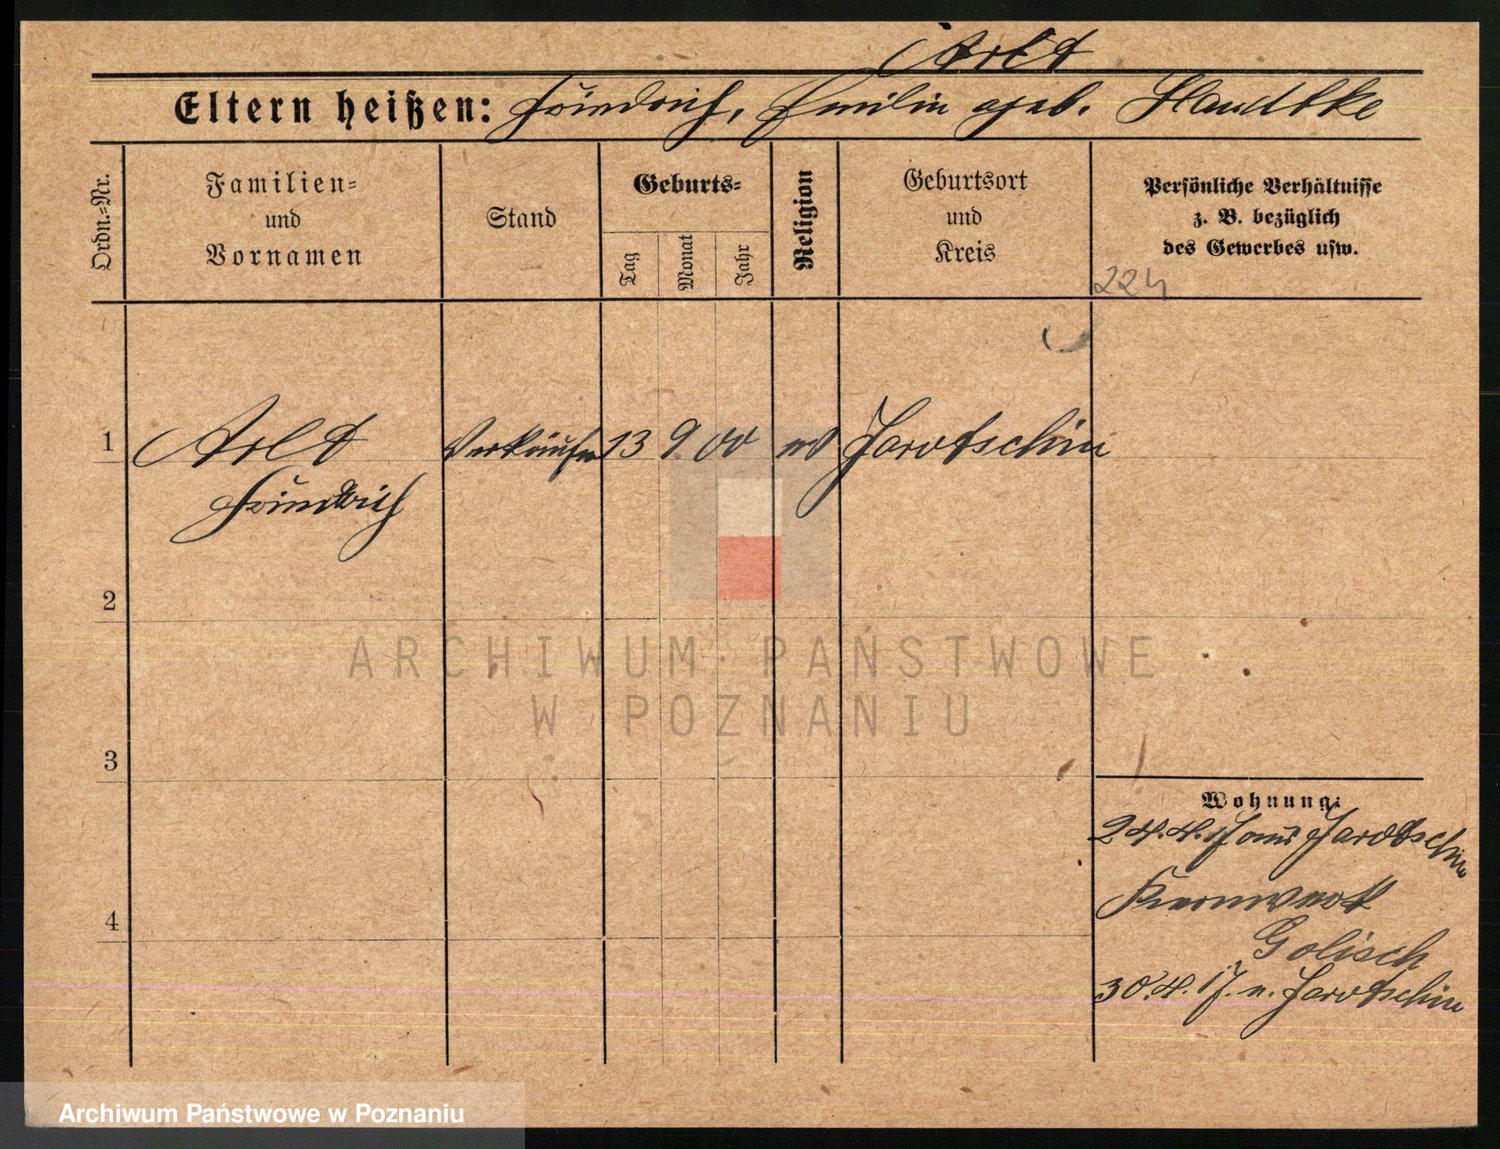 Arlt
Eltern heißen: Friedrich, Emilie geb. Handtke
Ordn.=Nr.
Familien=
und
Vornamen
Stand
Geburts=
Tag
Monat
Jahr
Religion
Geburtsort
und
Kreis
Persönliche Verhältnisse
z. B. bezüglich
des Gewerbes usw.
224
1 Arlt Verkäufer 13 9 00 Jarotschin
Friedrich
2
ARCHIWUM PAŃSTWOWE
W POZNANIU
3
Wohnung:
24.4.17 aus Jarotschin
4
Golisch
30.4.17. n. Jarotschin
Archiwum Państwowe w Poznaniu